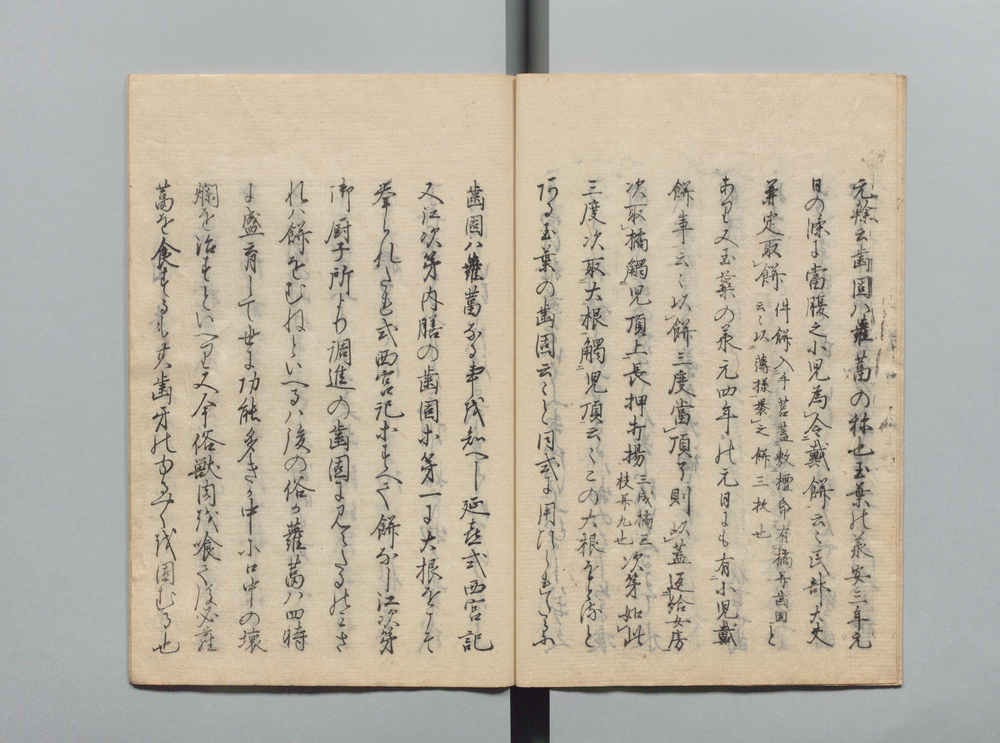 元輗云歯固ハ蘿蔔の称也玉葉の養安三年元
日の条に当腹之小児為令戴餅云々民部大丈
兼定取餅件餅入手筥蓋敷檀紙有橘并歯固云々以薄様裹之餅三枚也と
あり又玉葉の承元四年の元日にも有小児戴
餅事云々以餅三度当頂了則以蓋返給女房
次取橘觸児頂上長押打揚三成橘三枝并九也次第如此
三度次取大根觸児頂云々この大根をとると
ある玉葉の歯固云々と同或に用ひしもしるへ
歯固ハ蘿蔔なる事を知へし延喜式西宮記
又江次第内膳の歯固ホ第一に大根をもて
挙られたれと式西宮記ホすへて餅なし江次第
御厨子所より調進の歯固に見へたるのミさ
れハ餅をむねといへるハ後の俗か蘿蔔ハ四時
に盛育して世に功能多きか中ホ口中の壊
爛を治すといへり又今俗獣肉を喰て後必蘿
蔔を食するも其歯牙のゆるみを固むる也